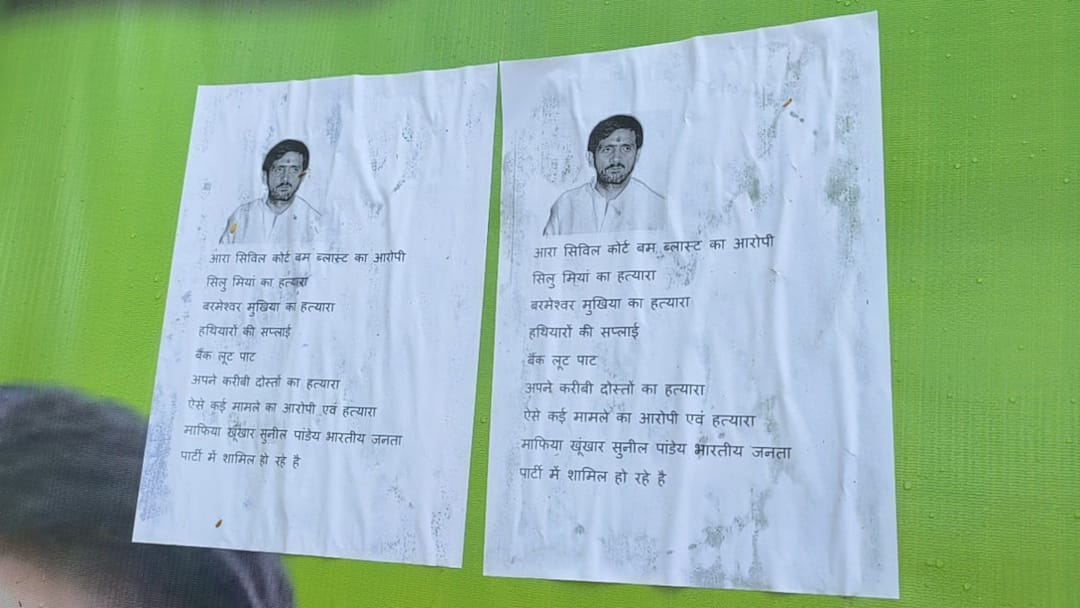 आरा सिविल कोर्ट बम ब्लास्ट का आरोपी
सिलु मियां का हत्यारा
बरमेश्वर मुखिया का हत्यारा
हथियारों की सप्लाई
बैंक लूट पाट
अपने करीबी दोस्तों का हत्यारा
ऐसे कई मामले का आरोपी एवं हत्यारा
माफिया खूंखार सुनील पांडेय भारतीय जनता
पार्टी में शामिल हो रहे है
आरा सिविल कोर्ट बम ब्लास्ट का आरोपी
सिलु मियां का हत्यारा
बरमेश्वर मुखिया का हत्यारा
हथियारों की सप्लाई
बैंक लूट पाट
अपने करीबी दोस्तों का हत्यारा
ऐसे कई मामले का आरोपी एवं हत्यारा
माफिया खूंखार सुनील पांडेय भारतीय जनता
पार्टी में शामिल हो रहे है